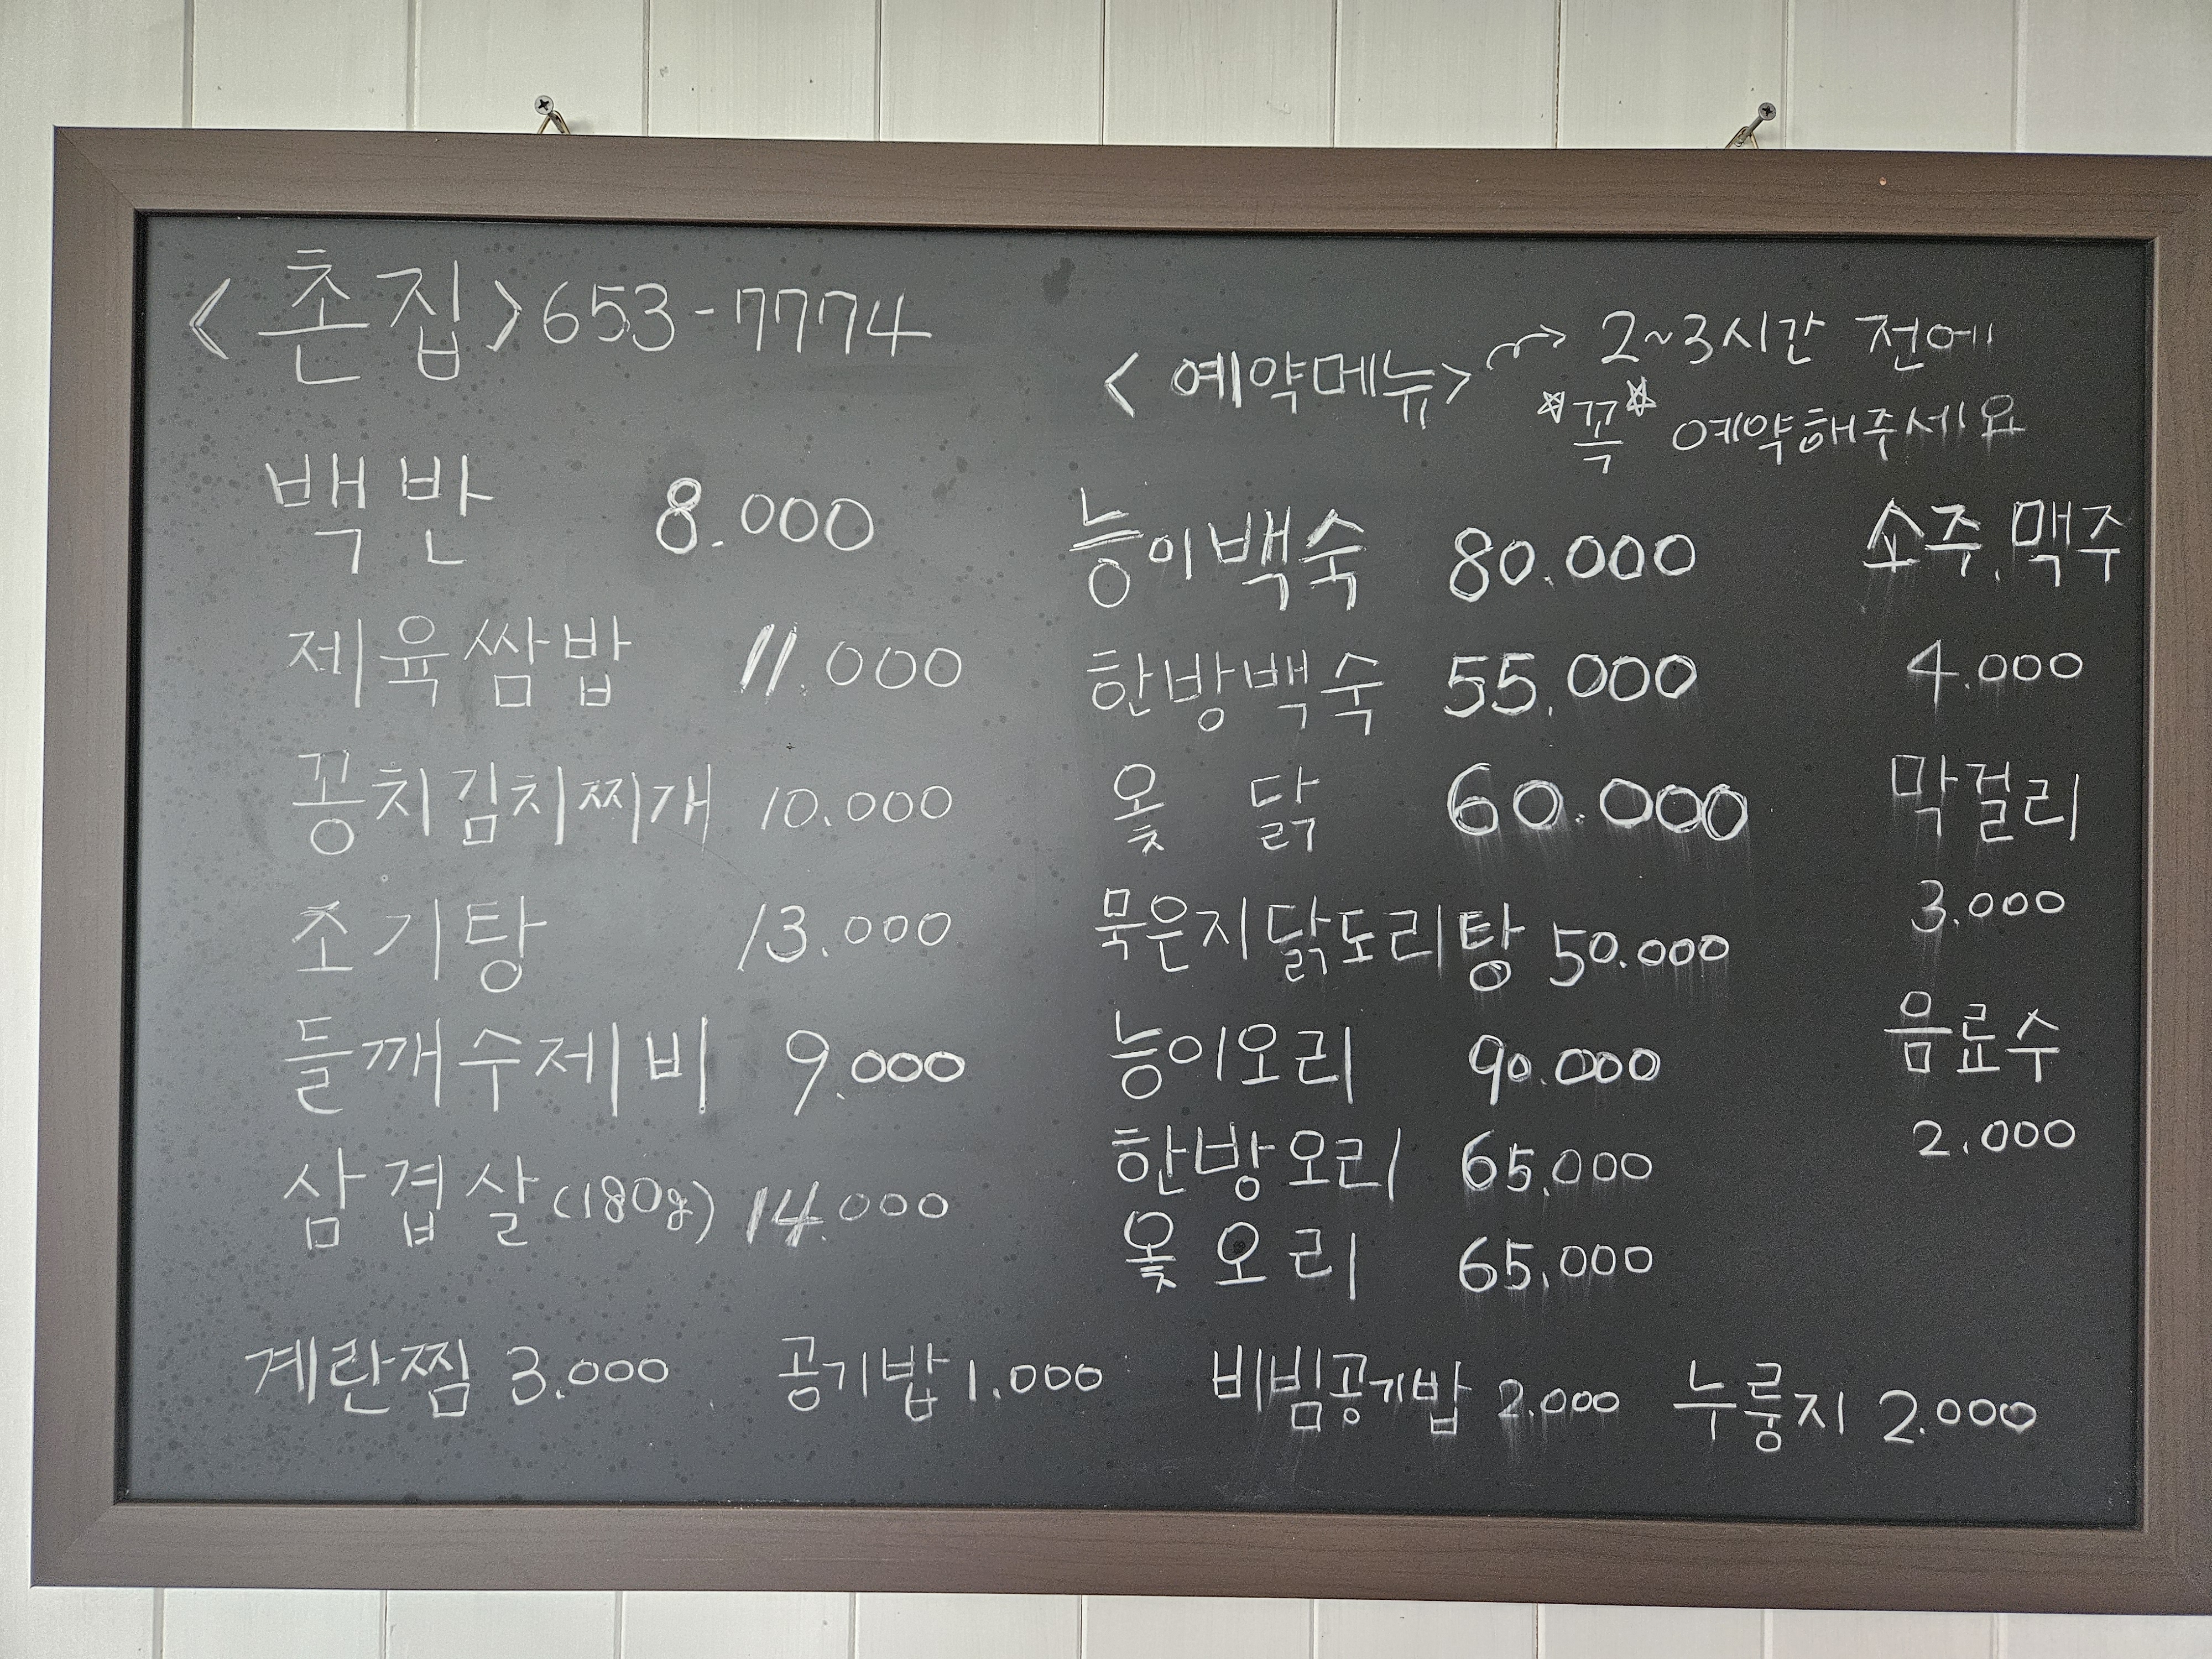 <촌집> 653-7774
백반 8.000
제육쌈밥 11.000
꽁치김치찌개 10.000
조기탕 13.000
들깨수제비 9.000
삼겹살(180g) 14.000
<예약메뉴> → 2~3시간 전에
☆꼭☆ 예약해주세요
능이백숙 80.000
한방백숙 55.000
옻닭 60.000
묵은지닭도리탕 50.000
능이오리 90.000
한방오리 65.000
옻오리 65.000
소주, 맥주
4.000
막걸리
3.000
음료수
2.000
계란찜 3.000 공기밥 1.000 비빔공기밥 2.000 누룽지 2.000